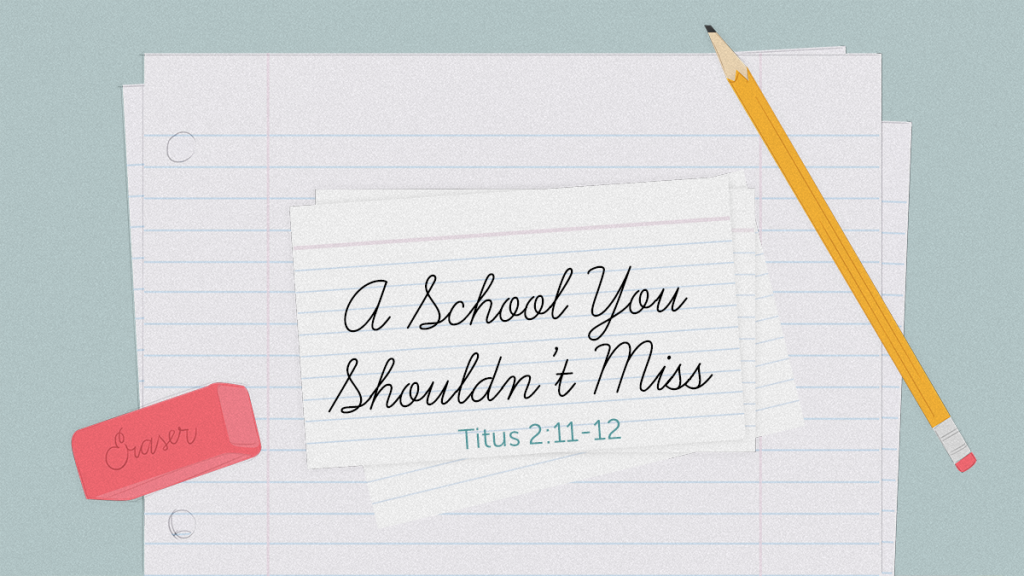 A School You
Shouldn't Miss
Titus 2:11-12
Eraser